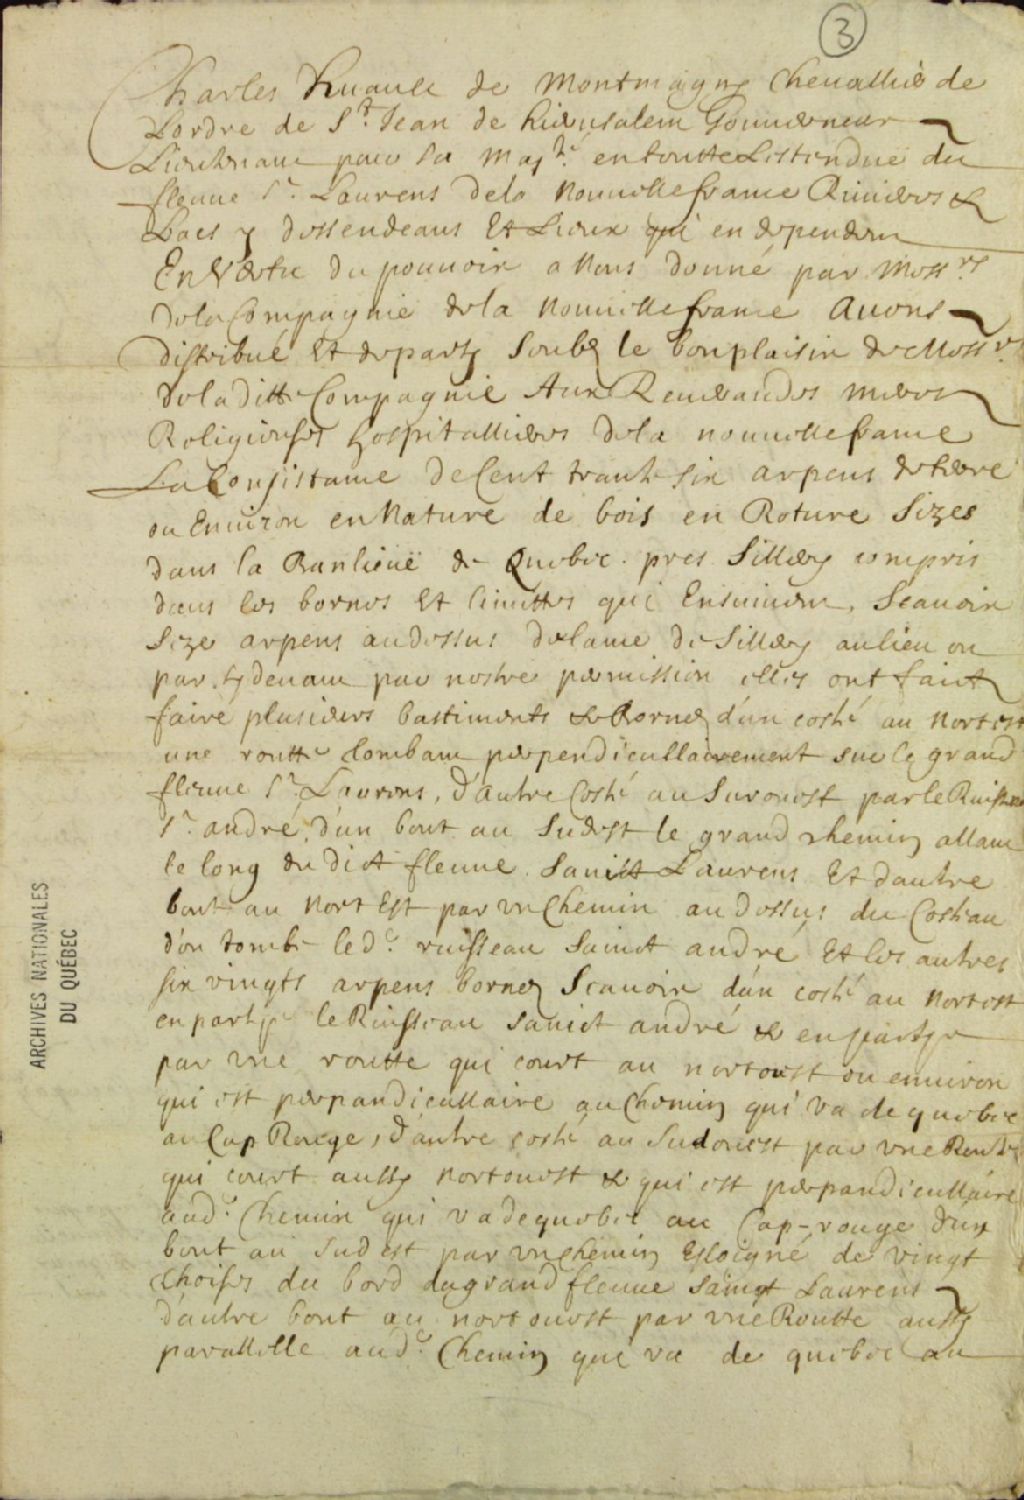 3
Charles Huault de Montmagny Cheuallier de
Lordre de St. Jean de hierusalem Gouuerneur
Lieutenant pour Sa Majté. en toutte Lestendue du
fleuue St. Laurens dela Nouuelle france Riuieres &
Lacs y dessendeans Et Lieux qui en dependent
En Vertu du pouuoir a Nous donné par Messrs.
dela Compagnie dela Nouuelle france Auons
distribué Et departy Soubz le bon plaisir de Messrs.
dela ditte Compagnie Aux Reuerandes meres
Religieuses hospitallieres dela nouuelle france
La Consistance de Cent trante six arpens de terre
ou Enuiron en Nature de bois en Roture Sizes
dans la Banlieuë de Quebec. pres Sillery compris
dans les bornes Et limittes qui Ensuiuent, Scauoir
Seze arpens au dessus delance de Sillery au lieu ou
par cy deuant par nostre permission elles ont faict
faire plusieurs bastiments & Bornez d'un costé au Nortest
une routte tombant perpendicullairement sur le grand
fleuue St. Laurens, d'autre Costé au Surouest par le Ruisseau
St. andré, d'un bout au Sudest le grand chemin allant
le long du dict fleuue Sainct Laurens Et dautre
bout au Nort Est par un Chemin au dessus du Costeau
d'ou tombe led. ruisseau Sainct andré Et les autres
six vingts arpens bornez Scauoir d'un costé au Nortest
en partye le Ruisseau Sainct andré & en partye
par vne routte qui court au nortouest ou enuiron
qui est perpandicullaire au Chemin qui va de quebec
au Cap Rouge, d'autre costé au Sudouest par vne Routte
qui court aussy nortouest & qui est perpandicullaire
aud. Chemin qui va de quebec au Cap-rouge d'un
bout au Sudest par vn chemin Esloigné de vingt
thoises du bord du grand fleuue Sainct Laurens
d'autre bout au nortouest par vne Routte aussy
parallelle aud. Chemin qui va de quebec au
ARCHIVES NATIONALES
DU QUÉBEC